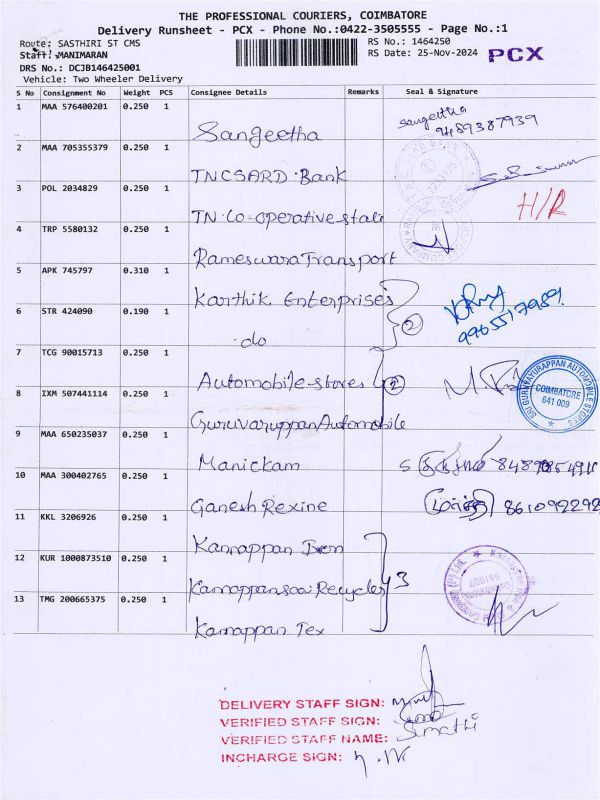 THE PROFESSIONAL COURIERS, COIMBATORE
Delivery Runsheet - PCX - Phone No.:0422-3505555 - Page No.:1
Route: SASTHIRI ST CMS
RS No.: 1464250
Staff: MANIMARAN
RS Date: 25-Nov-2024
PCX
DRS No.: DCJB146425001
Vehicle: Two Wheeler Delivery
S No Consignment No Weight PCS Consignee Details Remarks Seal & Signature
1 MAA 576400201 0.250 1 Sangeetha sangeetha
9489387939
2 MAA 705355379 0.250 1 TNCSARD. Bank
3 POL 2034829 0.250 1 TN Co-operative state H/R
4 TRP 5580132 0.250 1 Rameswara Transport
5 APK 745797 0.310 1 Karthik Enterprises
6 STR 424090 0.190 1 do 2
9965517989
7 TCG 90015713 0.250 1 Automobile stores 2
SRI GURUVAYURAPPAN AUTOMOBILE STORES
COIMBATORE
641 009
8 IXM 507441114 0.250 1 GuruvaruppanAutomobile
9 MAA 650235037 0.250 1 Manickam
10 MAA 300402765 0.250 1 Ganesh Rexine 861092292
11 KKL 3206926 0.250 1 Kannappan Iron
12 KUR 1000873510 0.250 1 Kannappansaai Recycles 3
13 TMG 200665375 0.250 1 Kannappan Tex
DELIVERY STAFF SIGN:
VERIFIED STAFF SIGN:
VERIFIED STAFF NAME: Sumathi
INCHARGE SIGN: